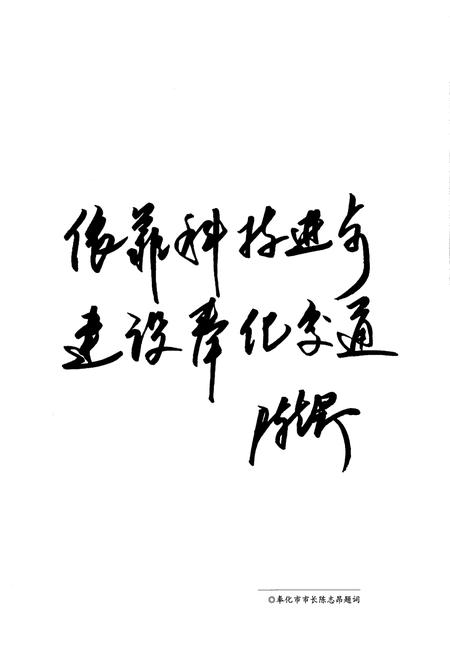 依靠科技进步
建设奉化交通
陈志昂
◎奉化市市长陈志昂题词